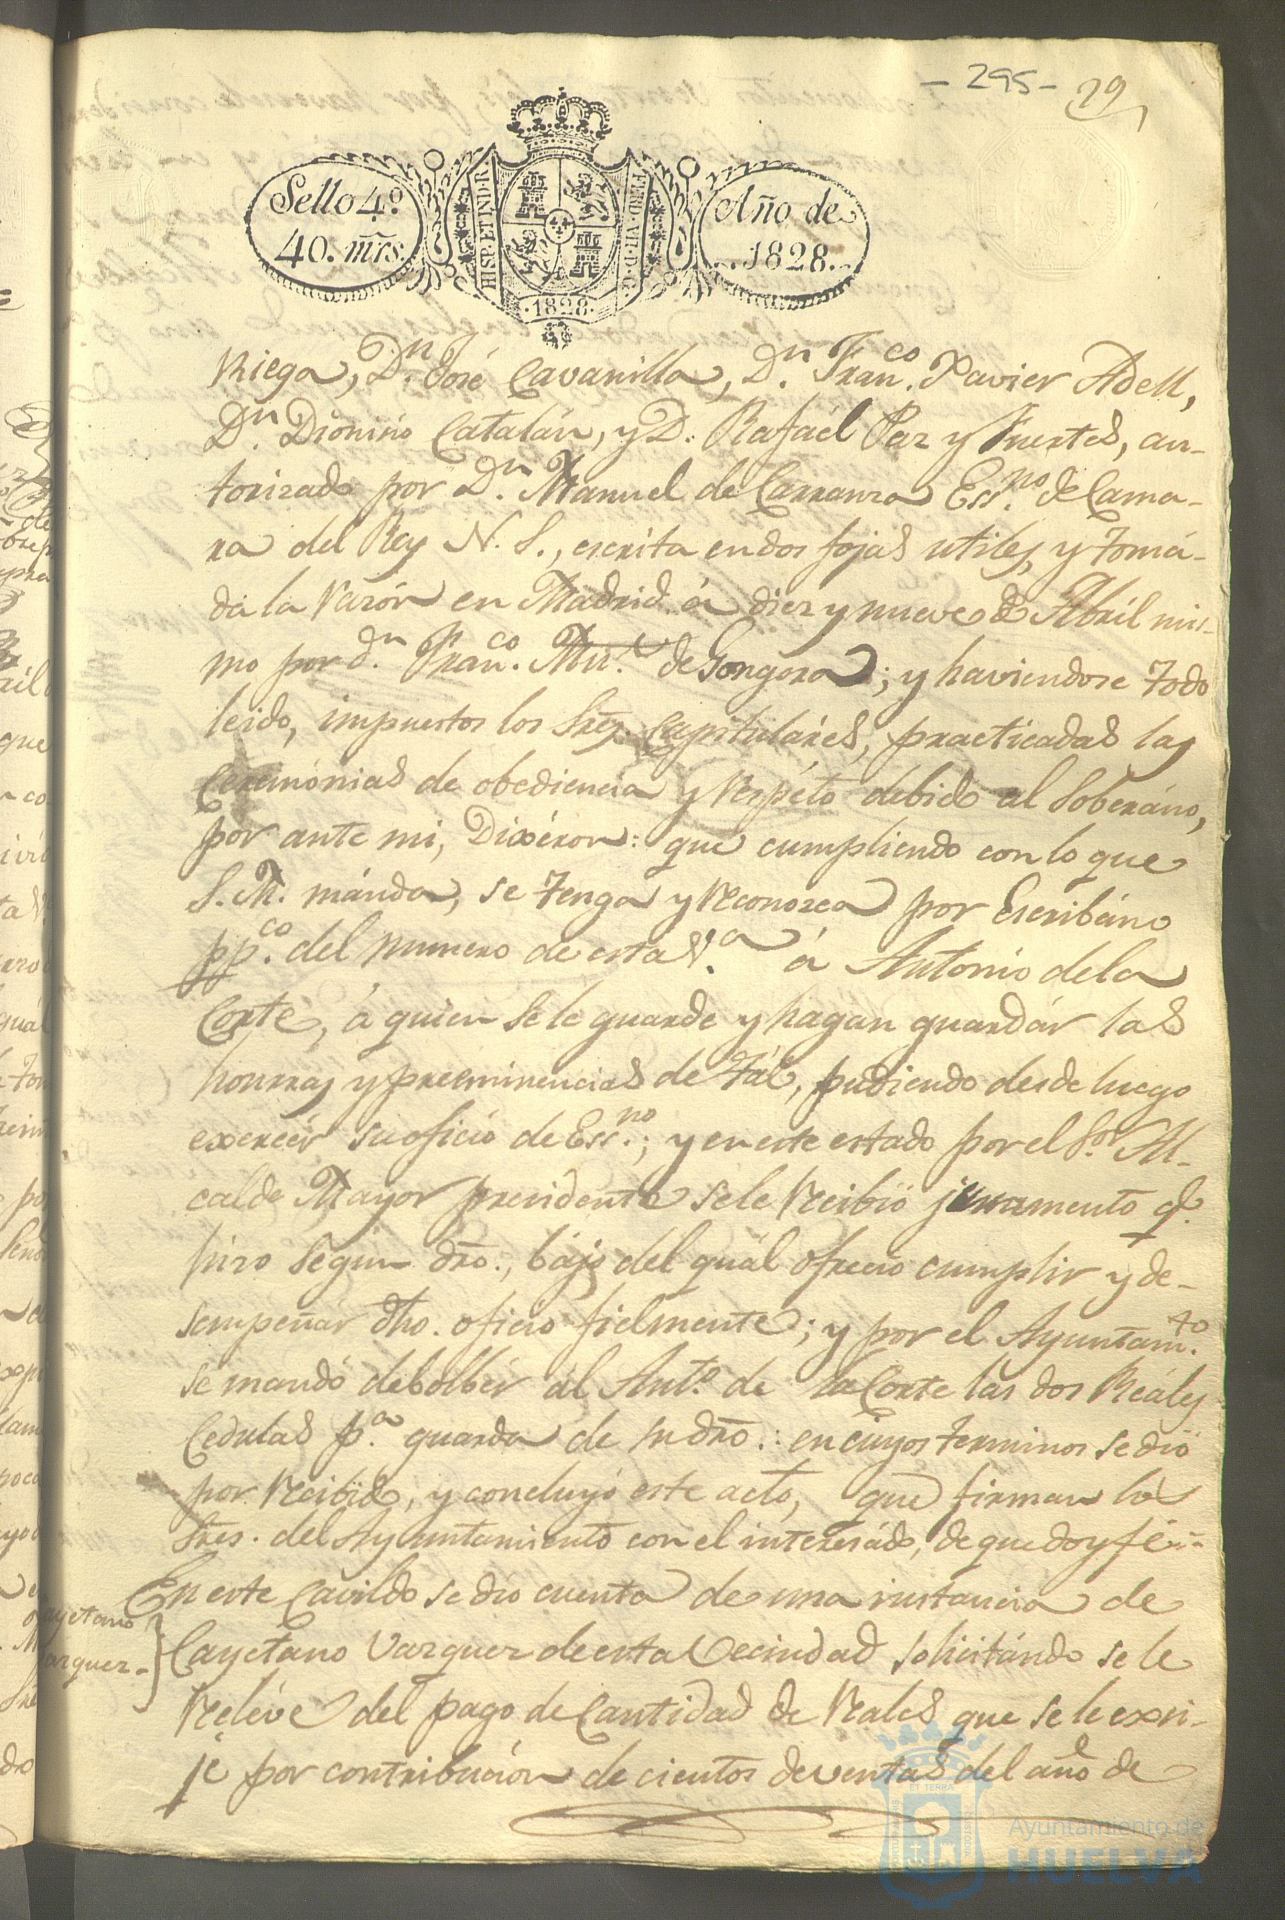 - 295 - 29
Sello 4º.
40. mrs.
HISP. ET IND. R.
FERD. VII. D. G.
·1828·
Año de
1828.
Riega, Dn. José Cavanilla, Dn. Franco. Xavier Adell,
Dn. Dionisio Catalán, y D. Rafaél Paz y Fuertes, au-
torizada por Dn. Manuel de Carranza Essno. de Cama-
ra del Rey N. S., escrita en dos fojas utiles, y tomá-
da la razón en Madrid á diez y nueve de Abril mis-
mo por dn. Franco. Mrl. de Gongora; y haviendose todo
leido, impuestos los Sres. Capituláres, practicadas las
Ceremónias de obediencia y respéto debido al Soberáno,
por ante mi, Dixéron: que cumpliendo con lo que
S. M. mánda, se tenga y reconozca por Escribáno
ppco. del numero de esta Va. á Antonio de la
Corte, á quien se le guarde y hagan guardár las
honrras y preeminencias de tál, pudiendo desde luego
exercér su oficio de Essno.; y en este estado por el Sor. Al-
calde Mayor presidente se le recibió juramento q.
hizo segun dro., bájo del quál ofreció cumplir y de-
sempeñar dho. oficio fielmente; y por el Ayuntamto.
se mandó debolber al Anto. de la Corte las dos Reáles
Cedulas pa. guarda de su dro.: en cuyos terminos se dió
por recibido, y concluyó este acto, que firman los
Sres. del Ayuntamiento con el interesádo, de que doy fé.=
En este Cavildo se dio cuenta de una instancia de
Cayetano
Vazquez
Cayetáno Vazquez de esta Vecindad solicitándo se le
reléve del pago de Cantidad de reales que se le exsi-
je por contribución de cientos de ventas del año de
ET TERRA
Ayuntamiento de
HUELVA